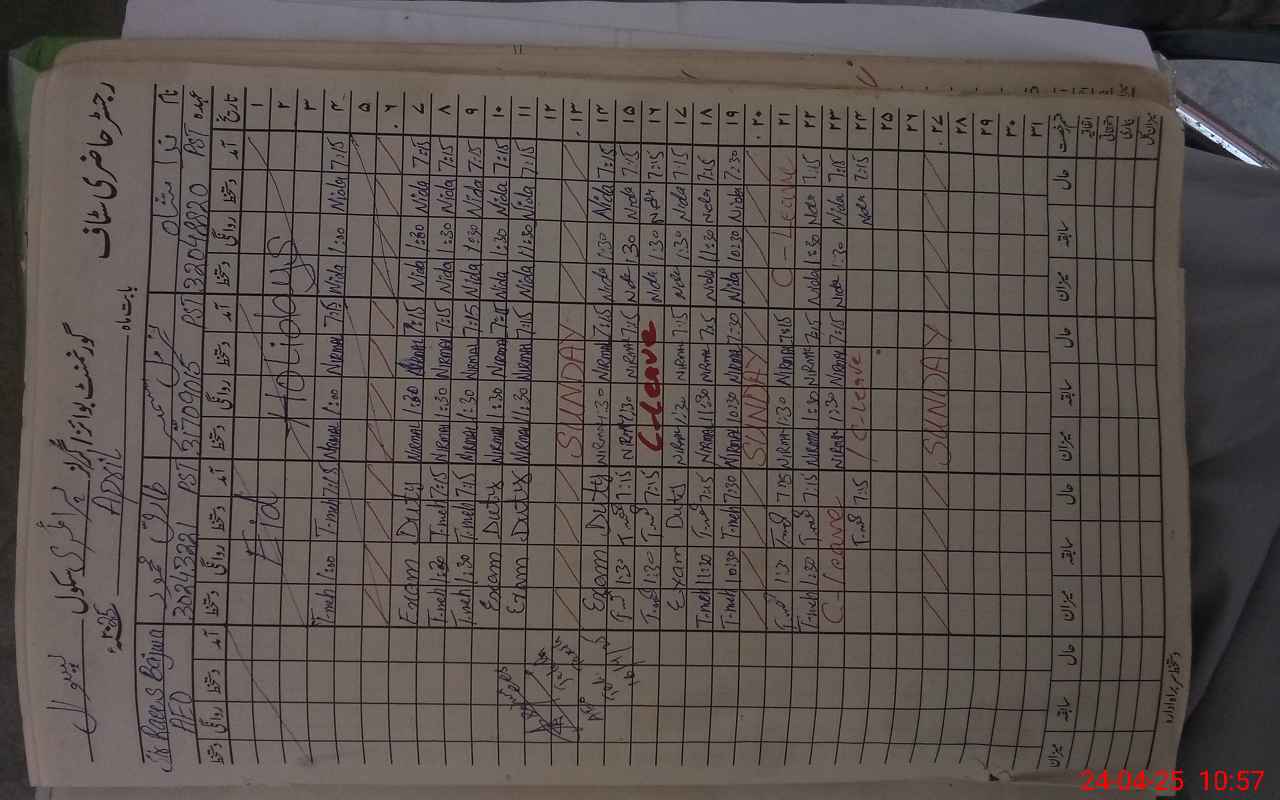 رجسٹر حاضری سٹاف
گورنمنٹ بوائز / گرلز پرائمری سکول
بابت ماہ April
نام ندا
عہدہ PST 32048820
PST 31709065
طارق محمود
PST 30243221
Sir Raees Bajwa
AEO
تاریخ آمد دستخط روانگی دستخط آمد دستخط روانگی دستخط آمد دستخط روانگی دستخط آمد دستخط روانگی دستخط
۱
۲ Eid Holidays
۳
۴ 7:15 Nida 1:00 Nida 7:15 Nirmal 1:00 Nirmal 7:15 T.meh 1:00 T.meh
۵
۶
۷ 7:15 Nida 1:30 Nida 7:15 Nirmal 1:30 Nirmal Exam Duty
۸ 7:15 Nida 1:30 Nida 7:15 Nirmal 1:30 Nirmal 7:15 T.meh 1:30 T.meh
۹ 7:15 Nida 1:30 Nida 7:15 Nirmal 1:30 Nirmal 7:15 T.meh 1:30 T.meh
۱۰ 7:15 Nida 1:30 Nida 7:15 Nirmal 1:30 Nirmal Exam Duty
۱۱ 7:15 Nida 11:30 Nida 7:15 Nirmal 11:30 Nirmal Exam Duty
۱۲
۱۳ SUNDAY
۱۴ 7:15 Nida 1:30 Nida 7:15 Nirmal 1:30 Nirmal Exam Duty
۱۵ 7:15 Nida 1:30 Nida 7:15 Nirmal 1:30 Nirmal 7:15 1:30
۱۶ 7:15 Nida 1:30 Nida C-Leave 7:15 1:30
۱۷ 7:15 Nida 1:30 Nida 7:15 Nirmal 1:30 Nirmal Exam Duty
۱۸ 7:15 Nida 11:30 Nida 7:15 Nirmal 11:30 Nirmal 7:15 T.meh 11:30 T.meh
۱۹ 7:30 Nida 10:30 Nida 7:30 Nirmal 10:30 Nirmal 7:30 T.meh 10:30 T.meh
۲۰ SUNDAY
۲۱ C-Leave 7:15 Nirmal 1:30 Nirmal 7:15 1:30
۲۲ 7:15 Nida 1:30 Nida 7:15 Nirmal 1:30 Nirmal 7:15 1:30 T.meh
۲۳ 7:15 Nida 1:30 Nida 7:15 Nirmal 1:30 Nirmal C-Leave
۲۴ 7:15 Nida C-Leave 7:15
۲۵
۲۶
۲۷ SUNDAY
۲۸
۲۹
۳۰
۳۱
حال سابقہ میزان حال سابقہ میزان حال سابقہ میزان حال سابقہ میزان
24-04-25 10:57